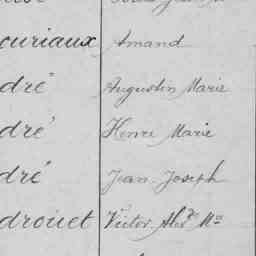 curiaux Amand
dré Augustin Marie
dré Henri Marie
dré Jean Joseph
drouet Victor Alex